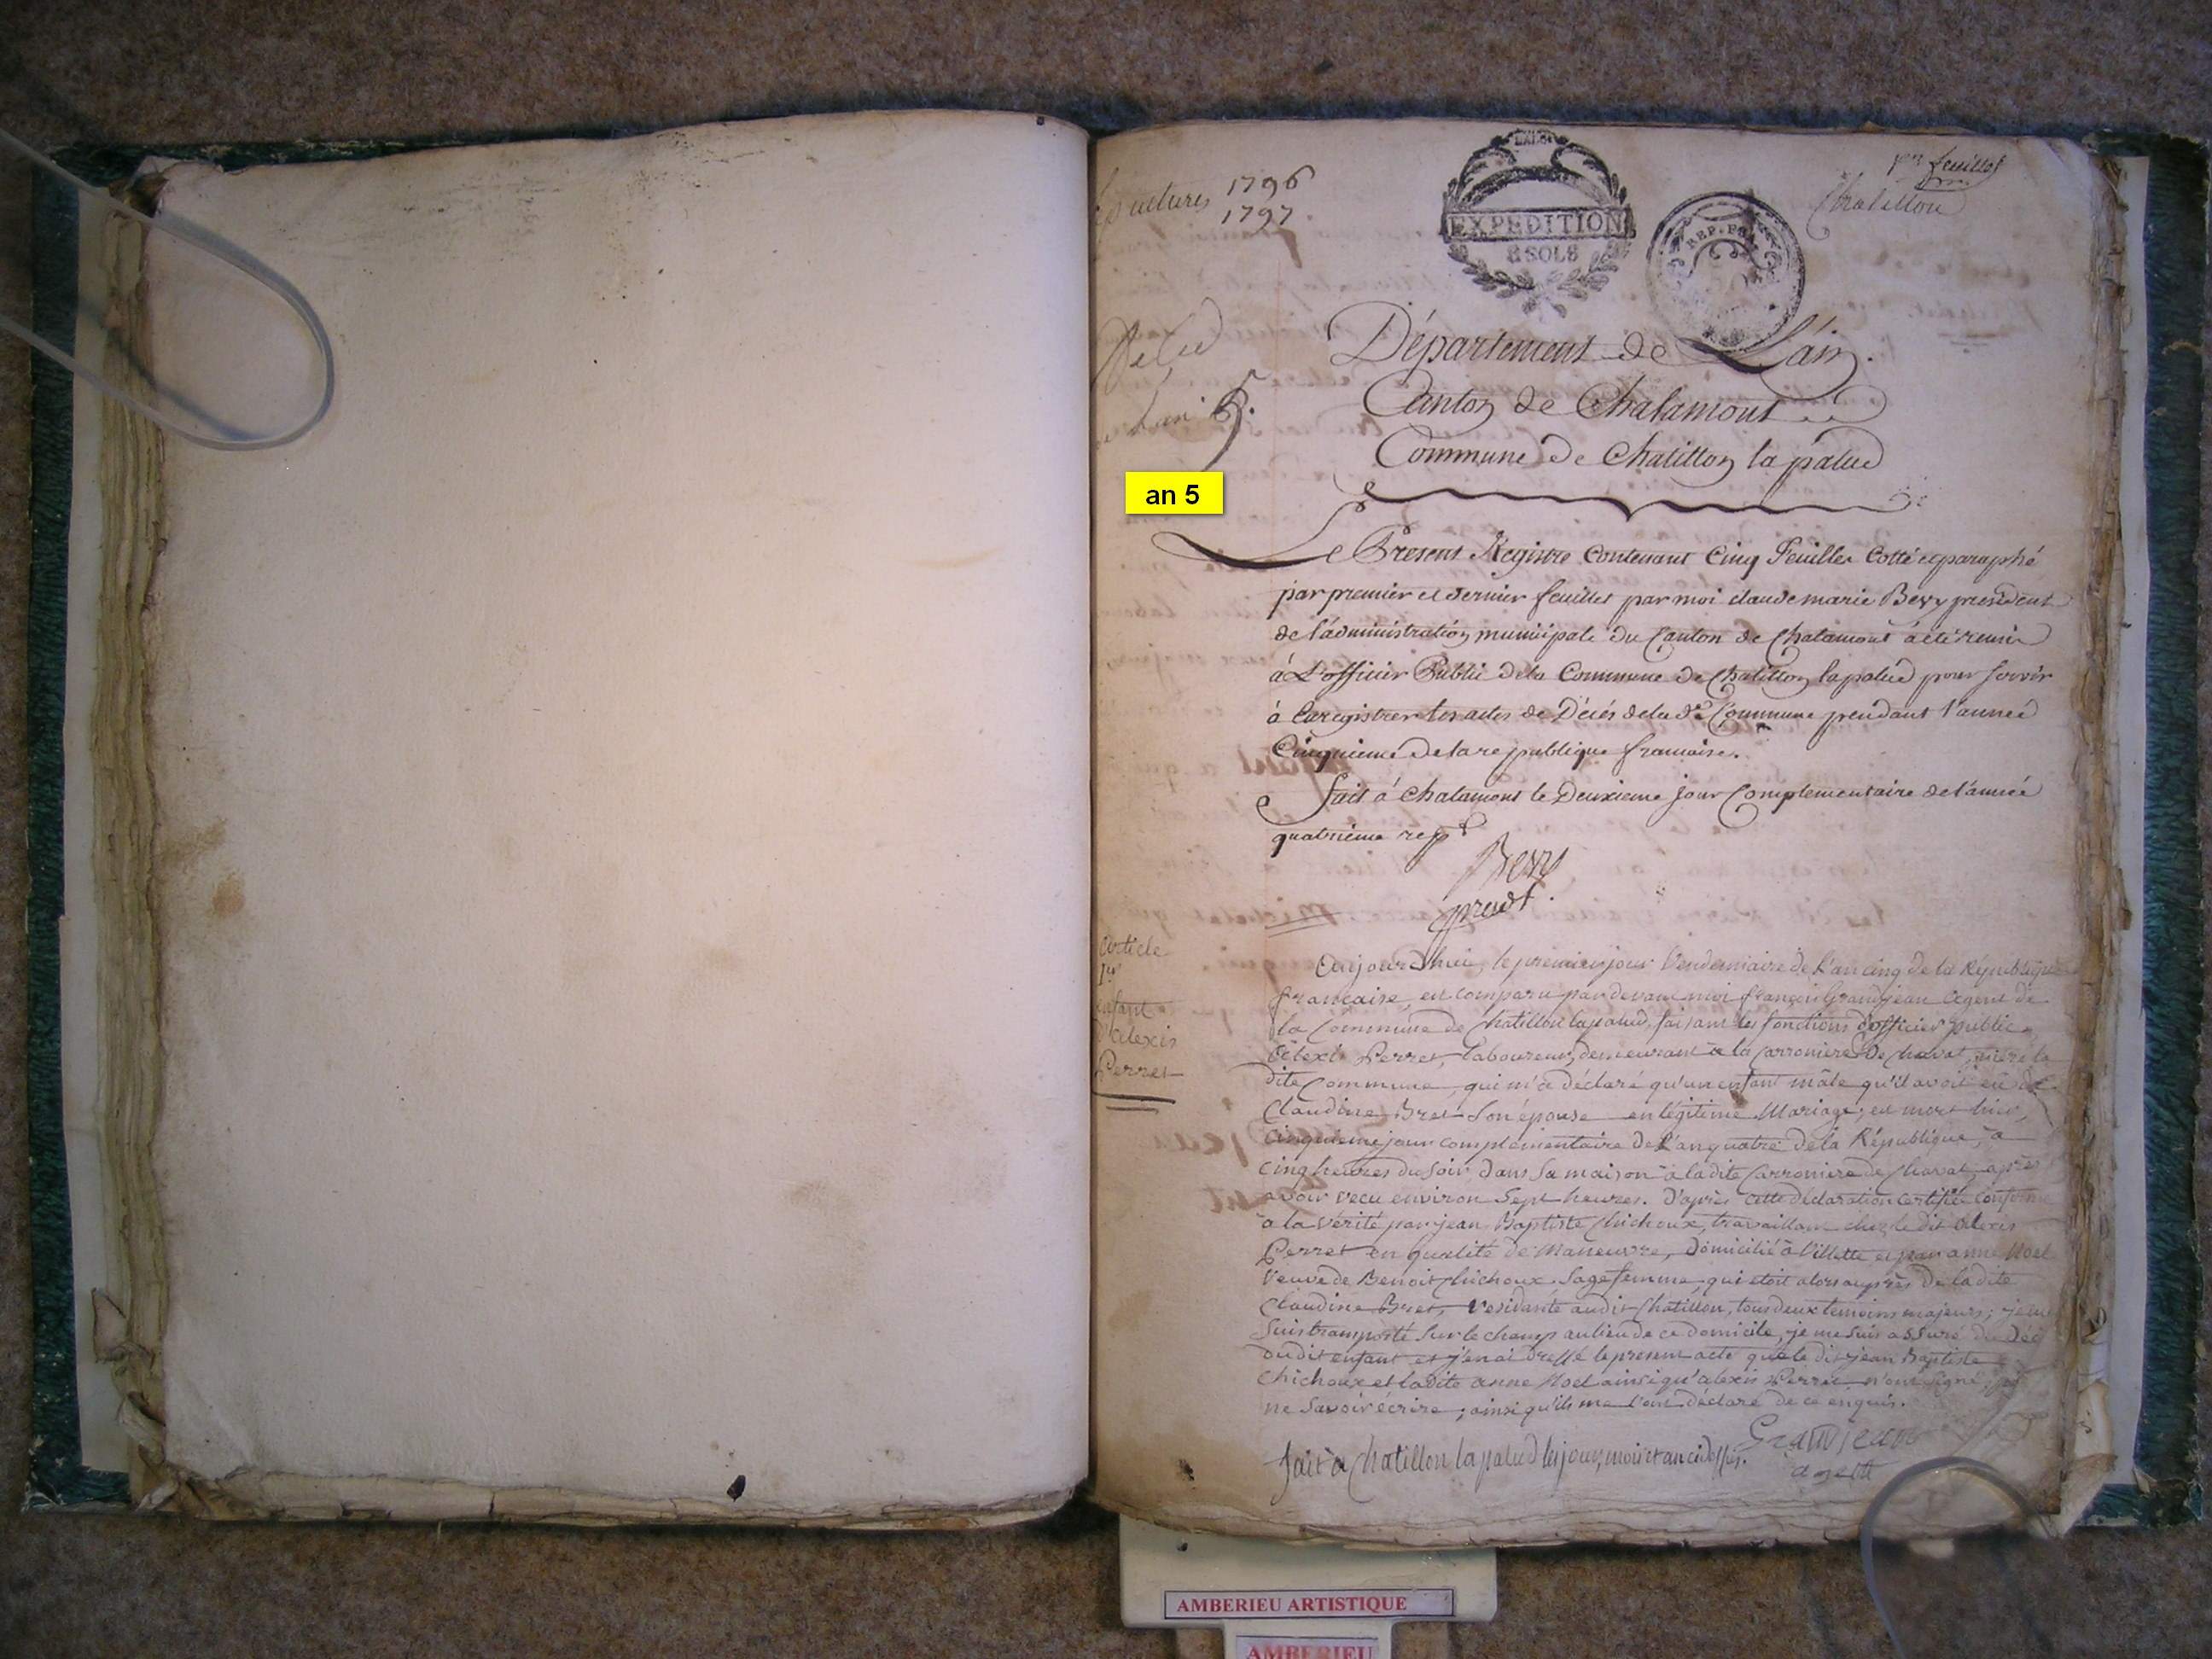 1er feuillet
Chatillon
1796
1797
EXPEDITION
8 SOLS
REP. FRA
Département de L'ain.
Canton de Chalamont
Commune de Chatillon la palud
Décès
5.
an 5
Le Present Registre Contenant Cinq feuilles Cotté et paraphé
par premier et dernier feuillet par moi claude marie Bevy president
de l'administration municipale du Canton de Chalamont à été remis
à L'officier Public de la Commune de Chatillon lapalud pour servir
à Enregistrer les actes de Décés de la de Commune pendant l'année
Cinquieme de la republique francaise.
fait à Chalamont le Deuxieme jour Complementaire de l'année
quatrieme rep
Bevy
presdt.
article
1er
enfant
d'alexis
Perret
Aujourdhui, le premier jour Vendemiaire de l'an cinq de la République
francaise, est comparu pardevant moi françois Grandjean agent de
la Commune de Chatillon lapalud, faisant les fonctions d'officier public,
alexis Perret, laboureur, demeurant à la Carroniere De Chavat, susdite
dite Commune, qui m'a déclaré qu'un enfant mâle qu'il avoit eû de
Claudine Bret son épouse en légitime Mariage, est mort hier,
cinquieme jour complementaire de l'an quatre de la République, à
cinq heures du soir, dans sa maison à la dite Carroniere de Chavat, après
avoir vecu environ sept heures. D'après cette déclaration certifiée conforme
à la vérité par jean Baptiste Chichoux, travaillant chez le dit alexis
Perret en qualité de Maneuvre, domicilié à Villette et par anne Noel
Veuve de Benoit Chichoux sage femme, qui étoit alors auprès de la dite
Claudine Bret, residante audit Chatillon, tous deux temoins majeurs; je me
suis transporté sur le champ au lieu de ce domicile, je me suis assuré du Décé
dudit enfant et j'en ai dressé le present acte que le dit jean Baptiste
Chichoux et la dite anne Noel ainsi qu'alexis Perret n'ont signé, pr
ne savoir écrire, ainsi qu'ils me l'ont déclaré de ce enquis.
fait à Chatillon la palud les jour, mois et an ci dessus.
Grandjean
agent
AMBERIEU ARTISTIQUE
AMBERIEU